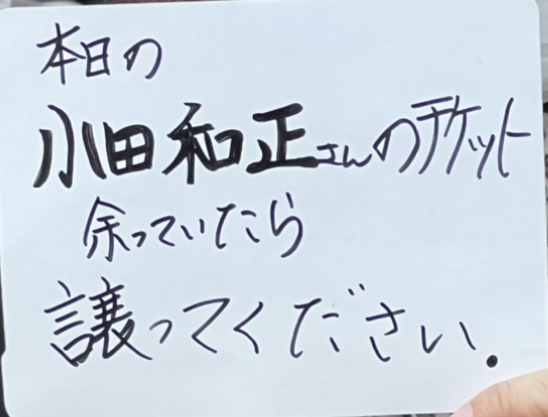 本日の
小田和正さんのチケット
余っていたら
譲ってください.